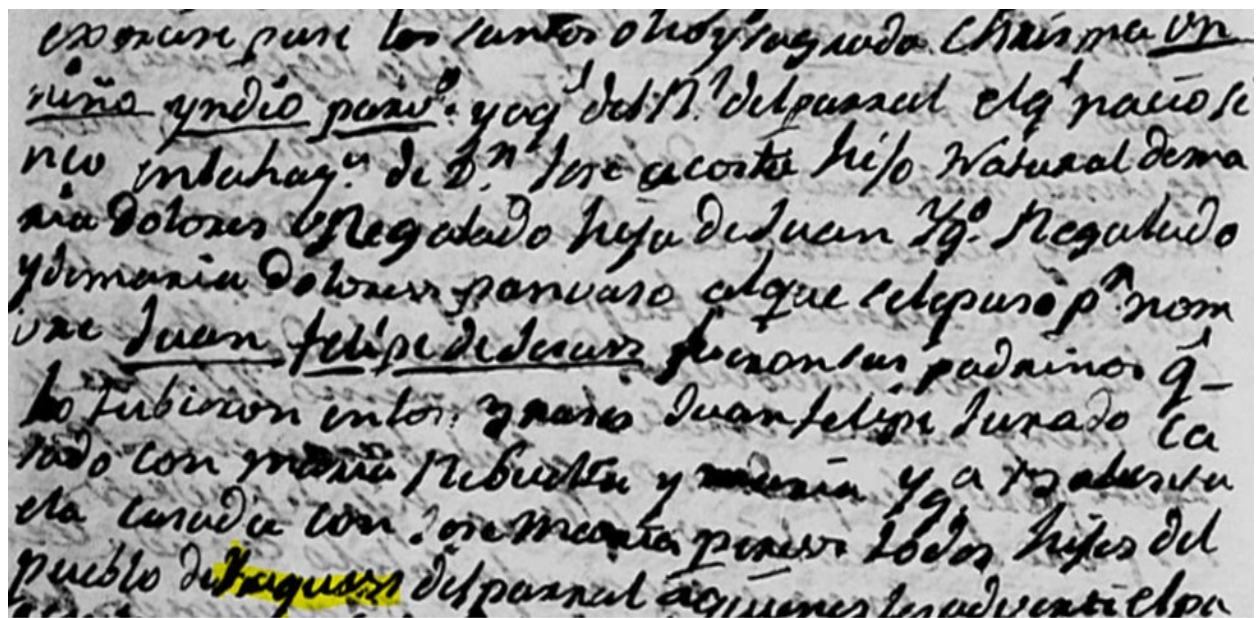 exorcise puse los santos oleos y sagrado Chrisma un
niño yndio parvo. y oq.l del R.l del parral elq.l nacio
nco en la haz.n de D.n Jose acosta hijo Natural dema
ria Dolores Regalado hija de Juan Yg.o Regalado
y de maria Dolores alque selepuso p.r nom
vre Juan felipe de Jesus fueron sus padrinos q.l
lo tubieron enlos brasos Juan felipe Jurado ca
sado con maria Rebuelta y maria Yg.a
ela casada con Jose maria peres todos hijos del
pueblo de delparral aquienes les adverti elpa